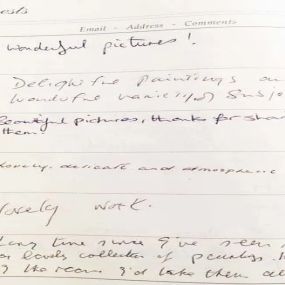 ests
Email - Address - Comments
Wonderful pictures!
Delightful paintings
Wonderful variety of
Beautiful pictures, thanks for shar
them.
lovely, delicate and atmospheric
lovely work.
long time since I've seen
lovely collection of paintings.
the room I'd take them